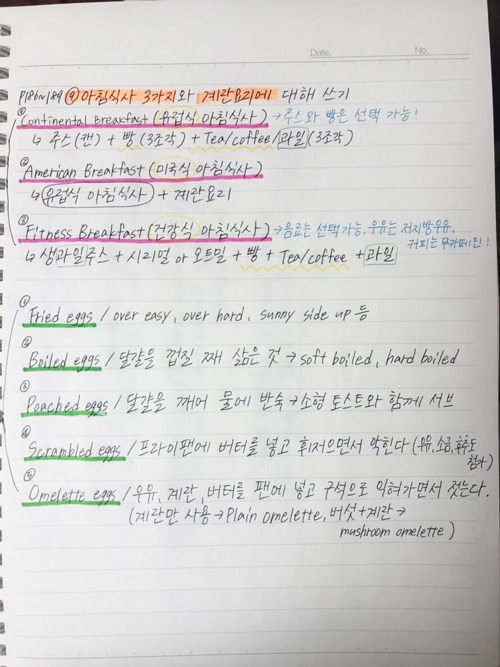 Date. No.
P186~189 ⑨ 아침식사 3가지와 계란요리에 대해 쓰기
① Continental Breakfast (유럽식 아침식사) → 주스와 빵은 선택 가능!
↳ 주스(캔) + 빵 (3조각) + Tea/coffee/과일(3조각)
② American Breakfast (미국식 아침식사)
↳ 유럽식 아침식사 + 계란요리
③ Fitness Breakfast (건강식 아침식사) → 음료는 선택가능, 우유는 저지방우유,
커피는 무카페인!
↳ 생과일주스 + 시리얼 or 오트밀 + 빵 + Tea/coffee + 과일
① Fried eggs / over easy, over hard, sunny side up 등
② Boiled eggs / 달걀을 껍질 째 삶은 것 → soft boiled, hard boiled
③ Poached eggs / 달걀을 깨어 물에 반숙 → 소형 토스트와 함께 서브
④ Scrambled eggs / 프라이팬에 버터를 넣고 휘저으면서 익힌다 (우유, 소금, 후추도
첨가)
⑤ Omelette eggs / 우유, 계란, 버터를 팬에 넣고 구석으로 익혀가면서 젓는다.
(계란만 사용 → Plain omelette, 버섯+계란 →
mushroom omelette)